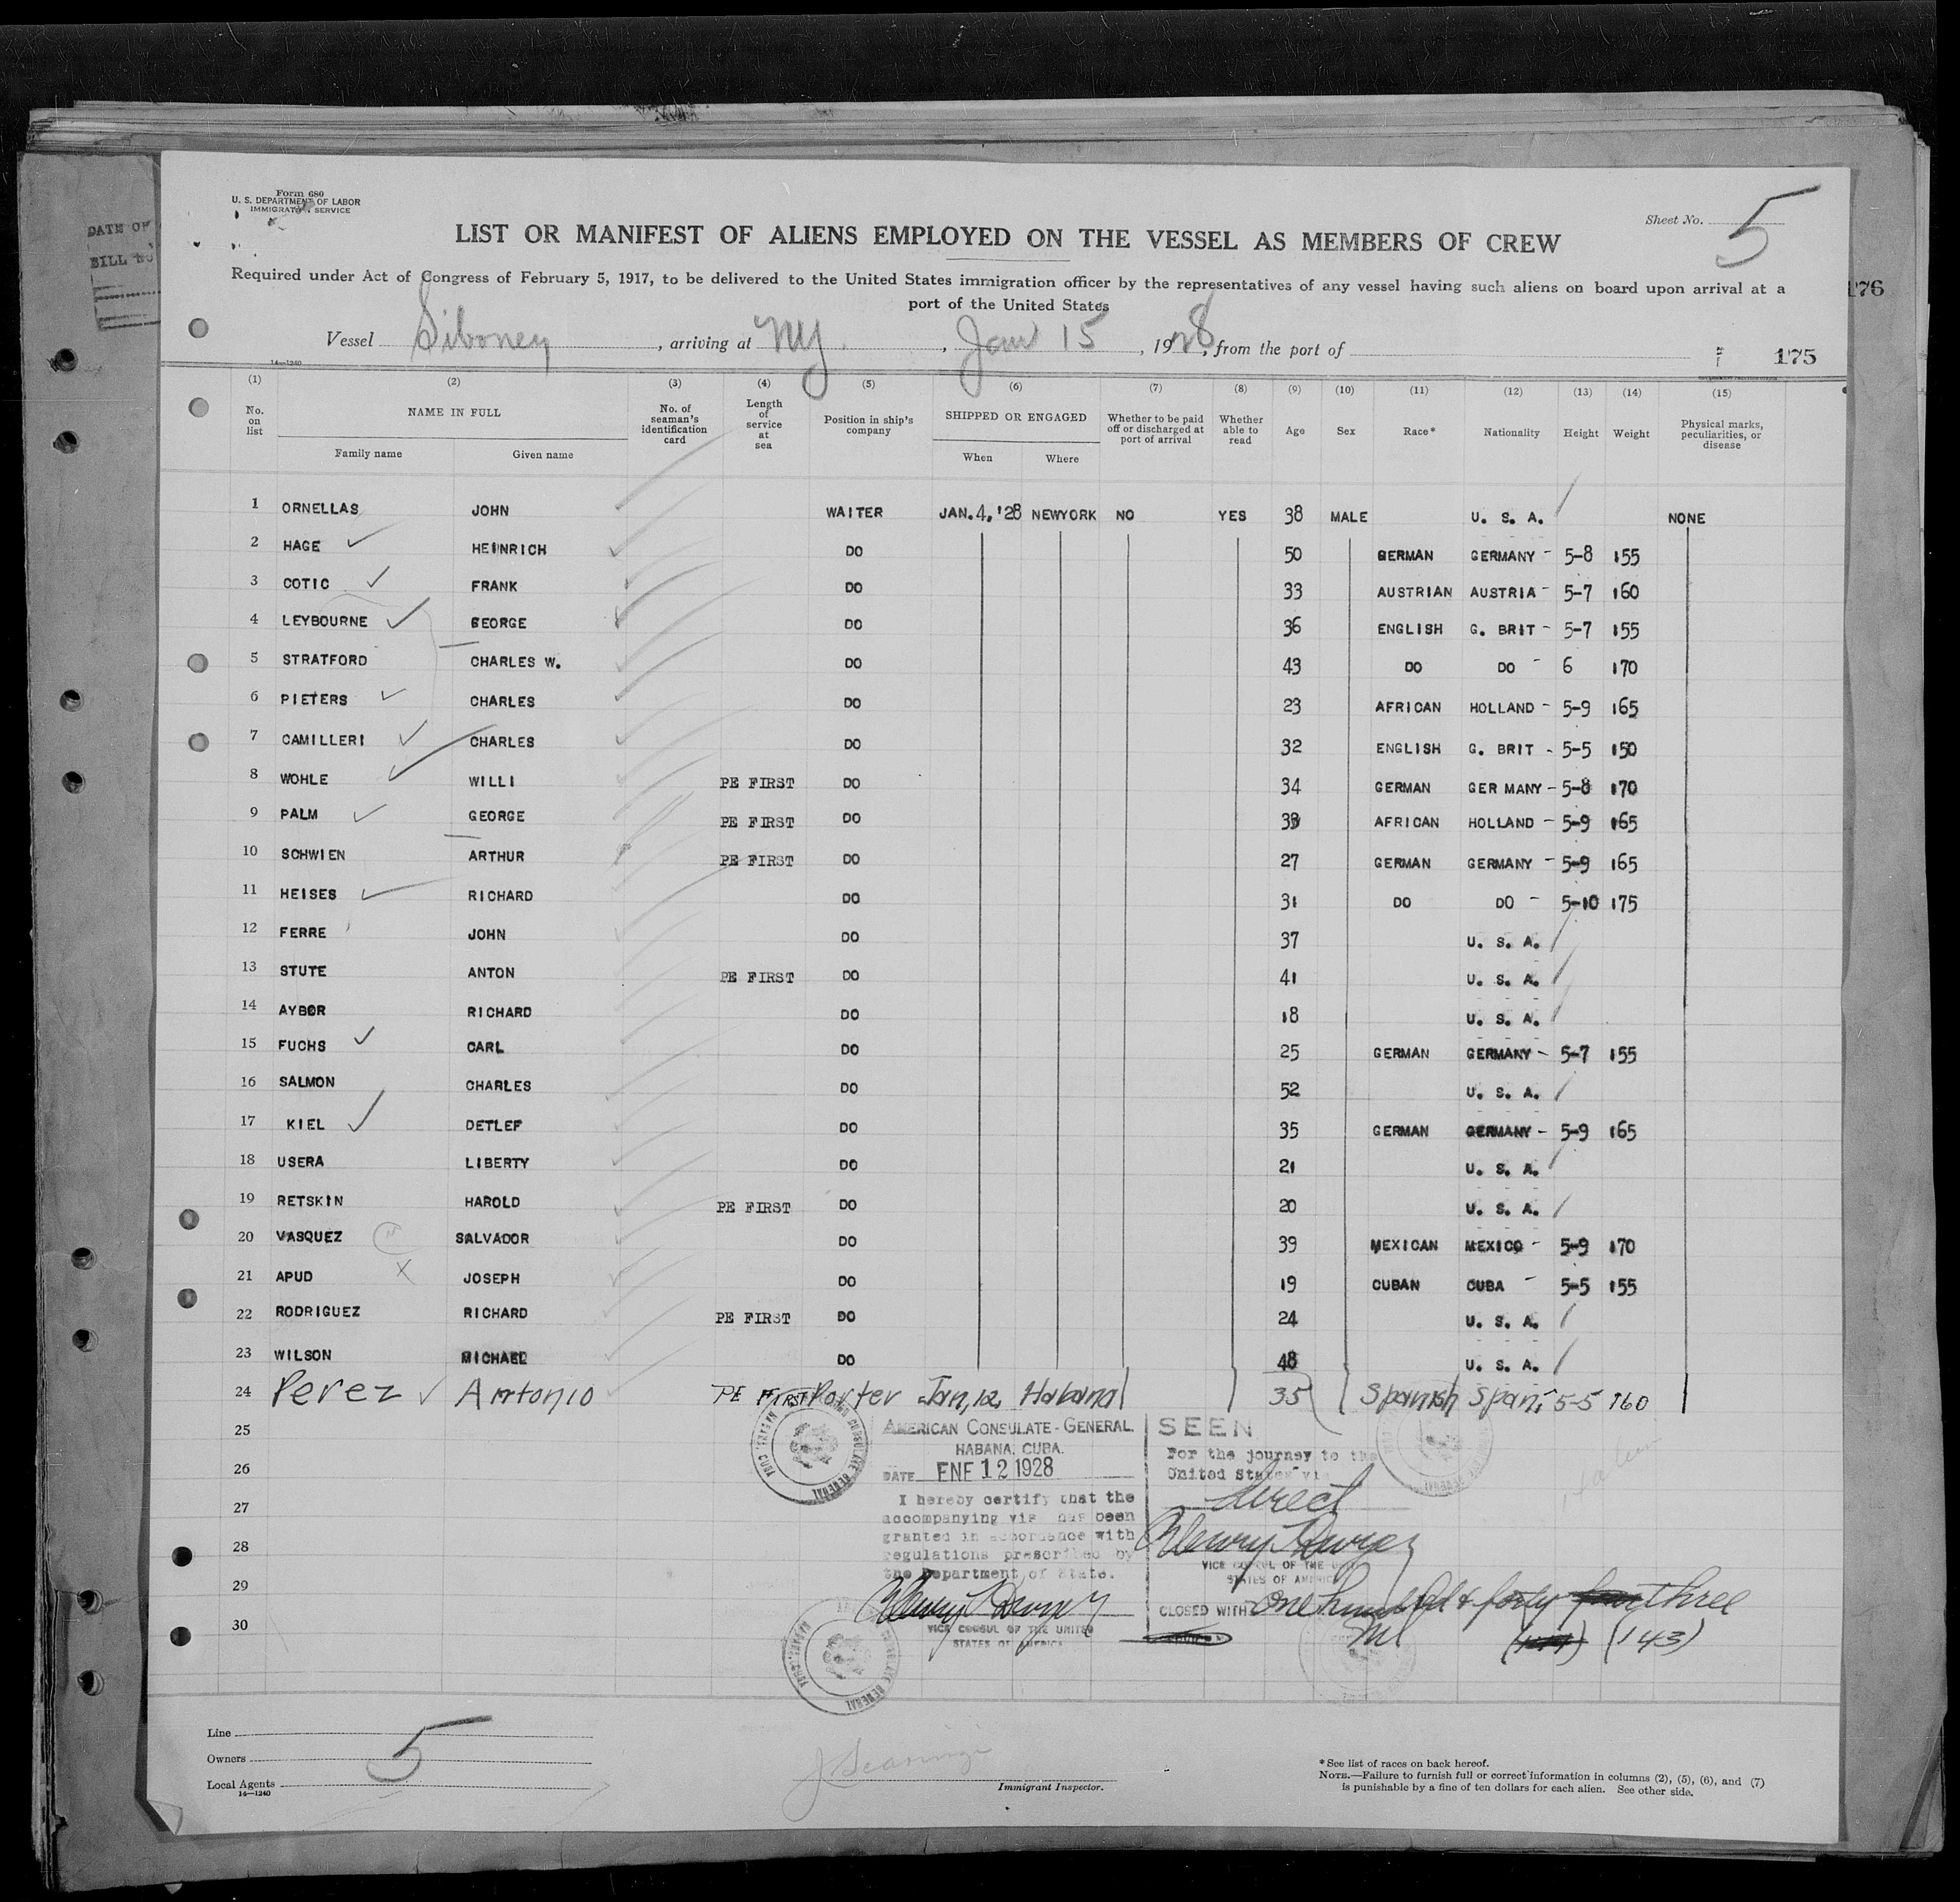 DATE OF
BILL NO
Form 680
U. S. DEPARTMENT OF LABOR
IMMIGRATION SERVICE
Sheet No. 5
LIST OR MANIFEST OF ALIENS EMPLOYED ON THE VESSEL AS MEMBERS OF CREW
Required under Act of Congress of February 5, 1917, to be delivered to the United States immigration officer by the representatives of any vessel having such aliens on board upon arrival at a
port of the United States
176
Vessel Siboney, arriving at NY, Jan 15, 1928, from the port of
14—1240
175
(1) (2) (3) (4) (5) (6) (7) (8) (9) (10) (11) (12) (13) (14) (15)
No. on list NAME IN FULL No. of seaman's identification card Length of service at sea Position in ship's company SHIPPED OR ENGAGED Whether to be paid off or discharged at port of arrival Whether able to read Age Sex Race* Nationality Height Weight Physical marks, peculiarities, or disease
Family name Given name When Where
1 ORNELLAS JOHN WAITER JAN.4,'28 NEWYORK NO YES 38 MALE U. S. A. NONE
2 HAGE HEINRICH DO 50 GERMAN GERMANY - 5-8 155
3 COTIC FRANK DO 33 AUSTRIAN AUSTRIA - 5-7 160
4 LEYBOURNE GEORGE DO 36 ENGLISH G. BRIT - 5-7 155
5 STRATFORD CHARLES W. DO 43 DO DO - 6 170
6 PIETERS CHARLES DO 23 AFRICAN HOLLAND - 5-9 165
7 CAMILLERI CHARLES DO 32 ENGLISH G. BRIT - 5-5 150
8 WOHLE WILLI PE FIRST DO 34 GERMAN GER MANY - 5-8 170
9 PALM GEORGE PE FIRST DO AFRICAN HOLLAND - 5-9 165
10 SCHWIEN ARTHUR PE FIRST DO 27 GERMAN GERMANY - 5-9 165
11 HEISES RICHARD DO 31 DO DO - 5-10 175
12 FERRE JOHN DO 37 U. S. A.
13 STUTE ANTON PE FIRST DO 41 U. S. A.
14 AYBOR RICHARD DO 18 U. S. A.
15 FUCHS CARL DO 25 GERMAN GERMANY - 5-7 155
16 SALMON CHARLES DO 52 U. S. A.
17 KIEL DETLEF DO 35 GERMAN GERMANY - 5-9 165
18 USERA LIBERTY DO 21 U. S. A.
19 RETSKIN HAROLD PE FIRST DO 20 U. S. A.
20 VASQUEZ SALVADOR DO 39 MEXICAN MEXICO - 5-9 170
21 APUD X JOSEPH DO 19 CUBAN CUBA - 5-5 155
22 RODRIGUEZ RICHARD PE FIRST DO 24 U. S. A.
23 WILSON MICHAEL DO 48 U. S. A.
24 Perez Antonio PE FIRST Porter Jan, 12, Habana 35 Spanish Spani 5-5 160
25
26
27
28
29
30
AMERICAN CONSULATE-GENERAL
HABANA, CUBA.
DATE ENE 12 1928
I hereby certify that the
accompanying visa has been
granted in accordance with
regulations prescribed by
the Department of State.
VICE CONSUL OF THE UNITED
STATES OF AMERICA
SEEN
For the journey to the
United States via
direct
VICE CONSUL OF THE UNITED
STATES OF AMERICA
CLOSED WITH One hundred & forty three
(143)
Line
Owners
Local Agents
5
14—1240
Immigrant Inspector.
*See list of races on back hereof.
NOTE.—Failure to furnish full or correct information in columns (2), (5), (6), and (7)
is punishable by a fine of ten dollars for each alien. See other side.